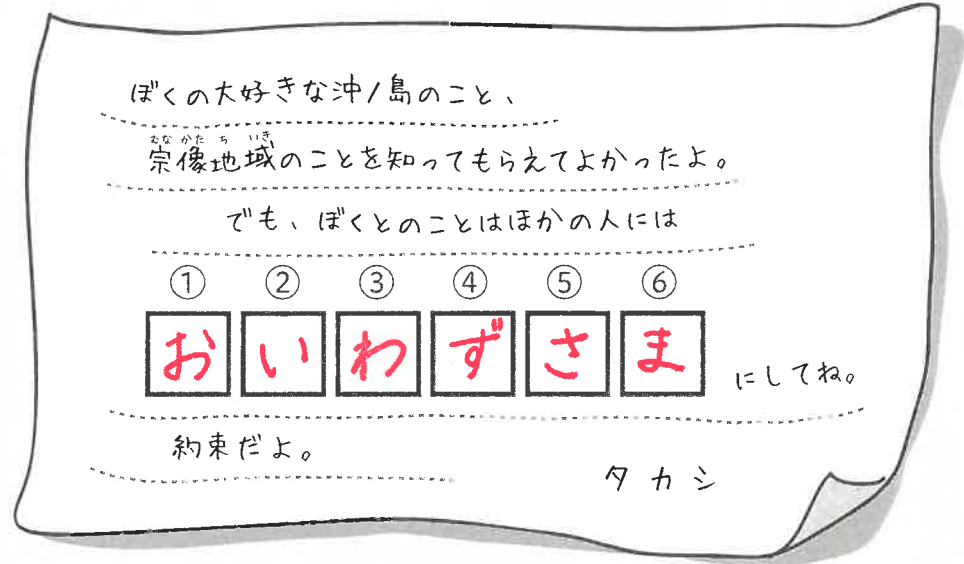 ぼくの大好きな沖ノ島のこと、
むなかたちいき
宗像地域のことを知ってもらえてよかったよ。
でも、ぼくとのことはほかの人には
① ② ③ ④ ⑤ ⑥
おいわずさま にしてね。
約束だよ。
タカシ